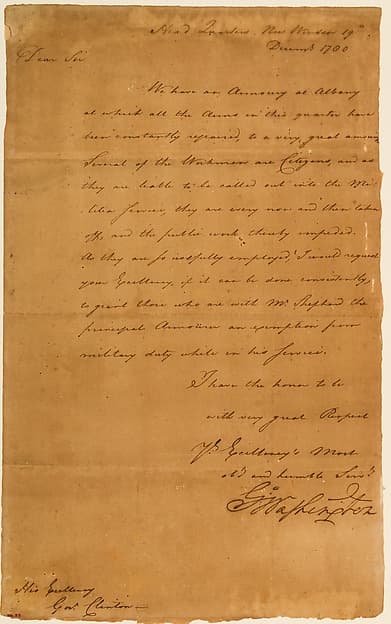 Head Quarters New Windsor 19th
Decemb 1780
Dear Sir
We have an Armoury at Albany
at which all the Arms in this quarter have
been constantly repaired, to a very great amount
Several of the Workmen are Citizens, and as
they are liable to be called out into the Mi-
litia Service, they are every now and then taken
off, and the public work thereby impeded.
As they are so usefully employed, I would request
your Excellency, if it can be done consistently,
to grant those who are with Mr. Shephard the
principal Armourer an exemption from
military duty while in his Service.
I have the honor to be
with very great Respect
Yr. Excellency's Most
Obt and humble Servt
Go Washington
His Excellency
Govr. Clinton